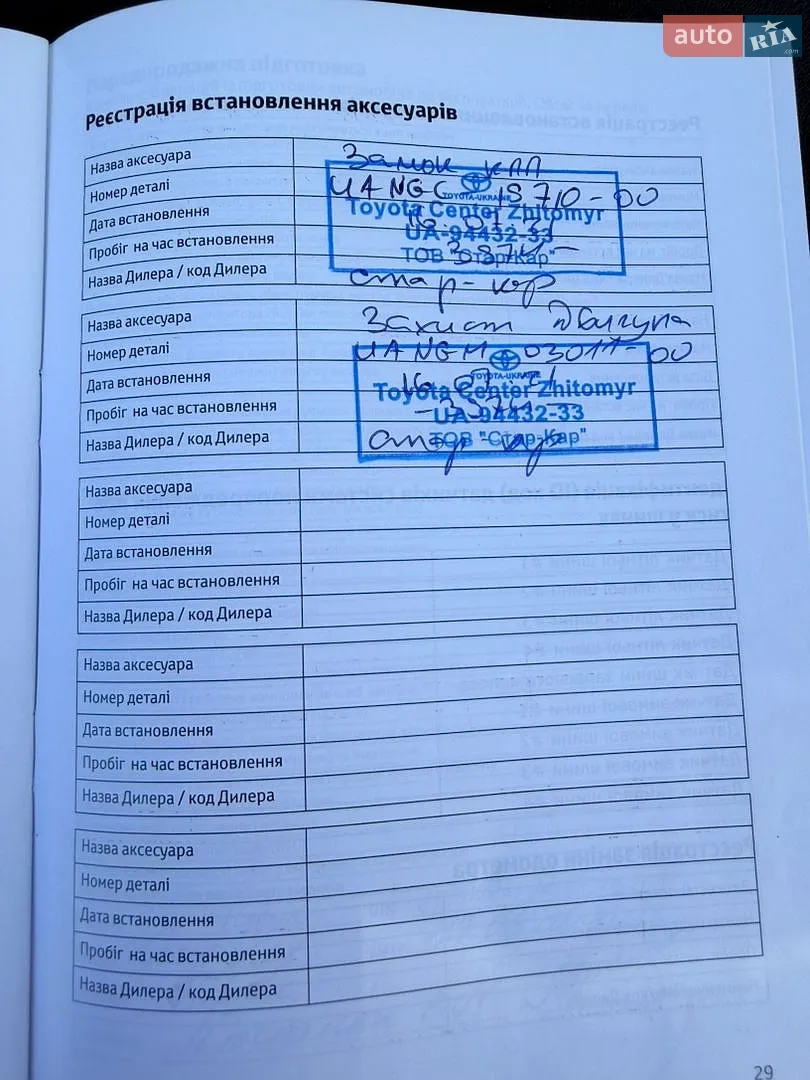 auto RIA.com
Реєстрація встановлення аксесуарів
Назва аксесуара Замок КПП
Номер деталі UANGC 1S710-00
TOYOTA-UKRAINE
Дата встановлення Toyota Center Zhitomyr
UA-94432-33
Пробіг на час встановлення ТОВ "Стар-Кар"
Назва Дилера / код Дилера Стар-кар
Назва аксесуара Захист Двигуна
Номер деталі UANGM 03011-00
TOYOTA-UKRAINE
Дата встановлення Toyota Center Zhitomyr
Пробіг на час встановлення UA-94432-33
Назва Дилера / код Дилера Стар кар ТОВ "Стар-Кар"
Назва аксесуара
Номер деталі
Дата встановлення
Пробіг на час встановлення
Назва Дилера / код Дилера
Назва аксесуара
Номер деталі
Дата встановлення
Пробіг на час встановлення
Назва Дилера / код Дилера
Назва аксесуара
Номер деталі
Дата встановлення
Пробіг на час встановлення
Назва Дилера / код Дилера
29